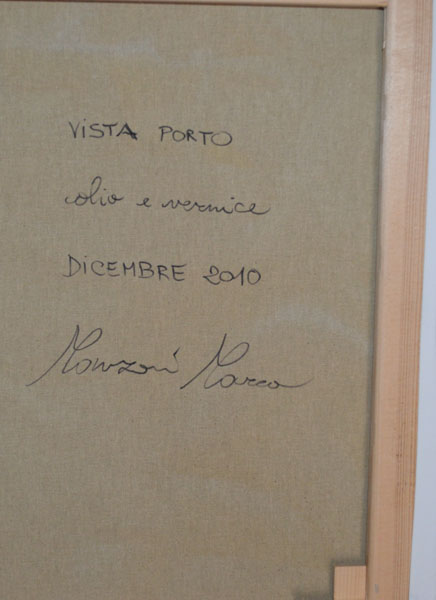 VISTA PORTO
olio e vernice
DICEMBRE 2010
Manzoni Marco